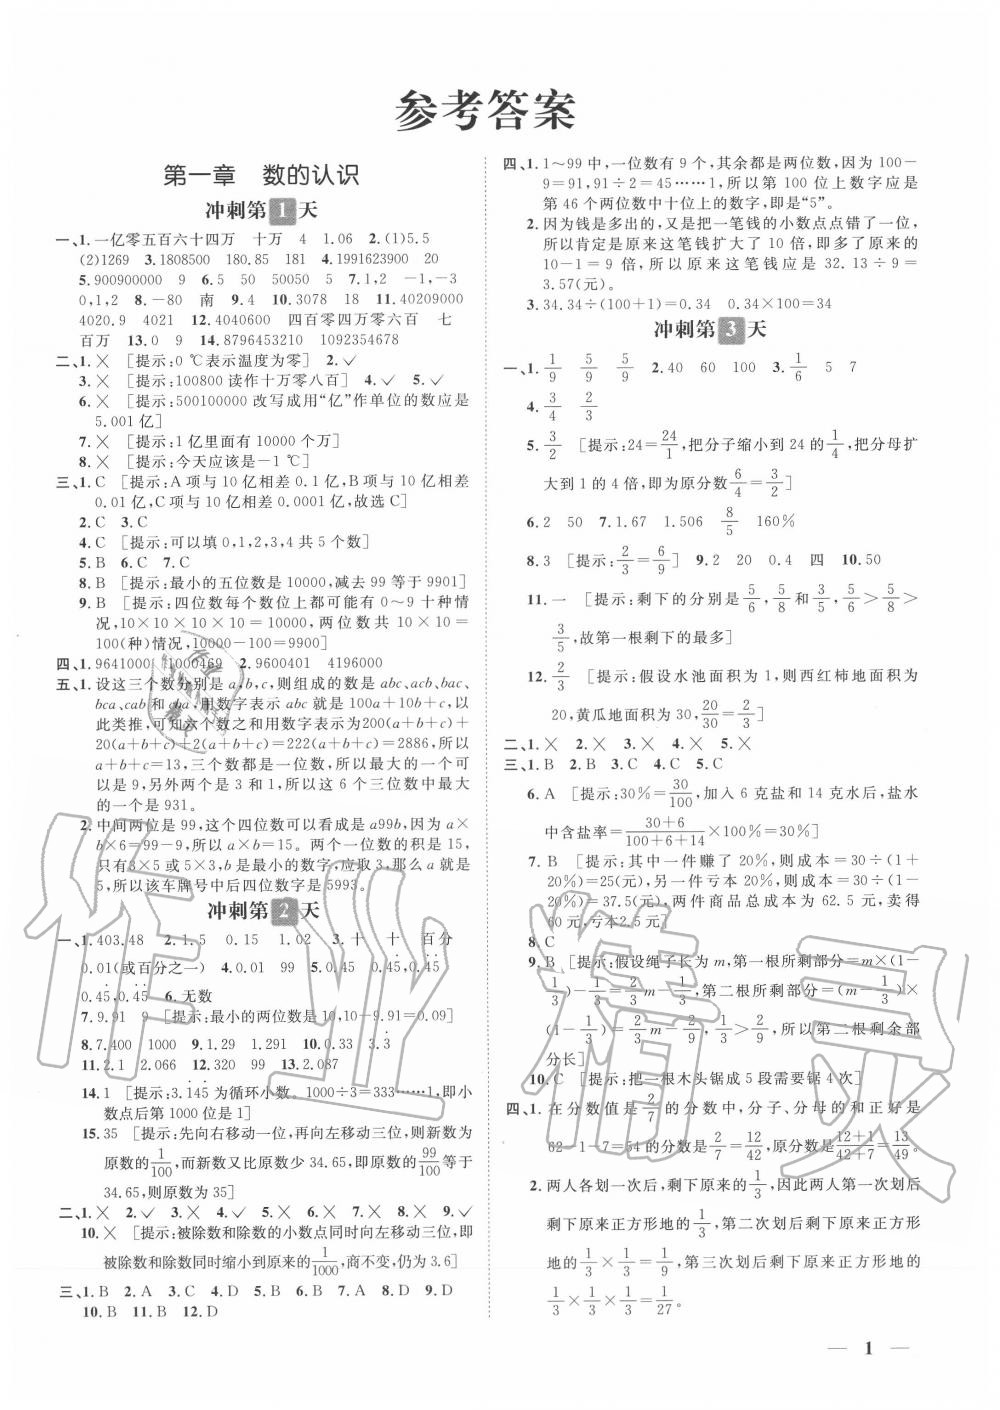 参考答案
第一章 数的认识
冲刺第1天
一、1.一亿零五百六十四万 十万 4 1.06 2.(1)5.5
(2)1269 3.1808500 180.85 181 4.1991623900 20
5.900900000 9 6.5 50 50050 5 7.1,2 -1,-3
0,1,2 8.-80 南 9.4 10.3078 18 11.40209000
4020.9 4021 12.4040600 四百零四万零六百 七
百万 13.0 9 14.8796453210 1092354768
二、1.× [提示:0 ℃表示温度为零] 2.✓
3.× [提示:100800 读作十万零八百] 4.✓ 5.✓
6.× [提示:500100000 改写成用“亿”作单位的数应是
5.001亿]
7.× [提示:1亿里面有10000个万]
8.× [提示:今天应该是-1 ℃]
三、1.C [提示:A项与10亿相差0.1亿,B项与10亿相差
0.01亿,C项与10亿相差0.0001亿,故选C]
2.C 3.C
4.C [提示:可以填0,1,2,3,4共5个数]
5.B 6.C 7.C
8.B [提示:最小的五位数是10000,减去99等于9901]
9.B [提示:四位数每个数位上都可能有0～9十种情
况,10×10×10×10=10000,两位数共10×10=
100(种)情况,10000-100=9900]
四、1.9641000 1000469 2.9600401 4196000
五、1.设这三个数分别是a,b,c,则组成的数是abc,acb,bac,
bca,cab和cba,用数字表示abc就是100a+10b+c,以
此类推,可知六个数之和用数字表示为200(a+b+c)+
20(a+b+c)+2(a+b+c)=222(a+b+c)=2886,所以
a+b+c=13,三个数都是一位数,所以最大的一个数
是9,另外两个是3和1,所以这6个三位数中最大
的一个是931。
2.中间两位是99,这个四位数可以看成是a99b,因为a×
b×6=99-9,所以a×b=15。两个一位数的积是15,
只有3×5或5×3,b是最小的数字,应取3,那么a就是
5,所以该车牌号中后四位数是5993。
冲刺第2天
一、1.403.48 2.1.5 0.15 1.02 3.十 十 百分
0.01(或百分之一) 4.0.01 99 5.0.45 0.4̇5̇,0.45̇
0.45,0.4̇5̇ 6.无数
7.9.91 9 [提示:最小的两位数是10,10-9.91=0.09]
8.7.400 1000 9.1.29 1.291 10.0.33 3.3̇
11.2.1 2.066 12.320 99 13.2.087
14.1 [提示:3.1̇45̇为循环小数。1000÷3=333……1,即小
数点后第1000位是1]
15.35 [提示:先向右移动一位,再向左移动三位,则新数为
原数的1/100,而新数又比原数少34.65,即原数的99/100等于
34.65,则原数为35]
二、1.× 2.✓ 3.× 4.✓ 5.× 6.× 7.× 8.× 9.✓
10.× [提示:被除数和除数的小数点同时向左移动三位,即
被除数和除数同时缩小到原来的1/1000,商不变,仍为3.6]
三、1.B 2.A 3.C 4.D 5.B 6.B 7.A 8.D 9.D
10.B 11.B 12.D
四、1.1～99中,一位数有9个,其余都是两位数,因为100-
9=91,91÷2=45……1,所以第100位上数字应是
第46个两位数中十位上的数字,即是“5”。
2.因为钱是多出的,又是把一笔钱的小数点点错了一位,
所以肯定是原来这笔钱扩大了10倍,即多了原来的
10-1=9倍,所以原来这笔钱应是32.13÷9=
3.57(元)。
3.34.34÷(100+1)=0.34 0.34×100=34
冲刺第3天
一、1.1/9 5/9 5/9 2.40 60 100 3.1/6 5 7
4.3/4 2/3
5.3/2 [提示:24=24/1,把分子缩小到24的1/4,把分母扩
大到1的4倍,即为原分数6/4=3/2]
6.2 50 7.1.67 1.506 8/5 160%
8.3 [提示:2/3=6/9] 9.2 20 0.4 四 10.50
11.一 [提示:剩下的分别是5/6,5/8和3/5,5/6>5/8>
3/5,故第一根剩下的最多]
12.2/3 [提示:假设水池面积为1,则西红柿地面积为
20,黄瓜地面积为30,20/30=2/3]
二、1.× 2.× 3.× 4.× 5.×
三、1.B 2.B 3.C 4.C 5.C
6.A [提示:30%=30/100,加入6克盐和14克水后,盐水
中含盐率=30+6/100+6+14×100%=30%]
7.B [提示:其中一件赚了20%,则成本=30÷(1+
20%)=25(元),另一件亏本20%,则成本=30÷(1-
20%)=37.5(元),两件商品总成本为62.5元,卖得
60元,亏本2.5元]
8.C
9.B [提示:假设绳子长为m,第一根所剩部分=m×(1-
1/3)-1/3=2/3m-1/3,第二根所剩部分=(m-1/3)×
(1-1/3)=2/3m-2/9,1/3>2/9,所以第二根剩余部
分长]
10.C [提示:把一根木头锯成5段需要锯4次]
四、1.在分数值是2/7的分数中,分子、分母的和正好是
62-1-7=54的分数是2/7=12/42,原分数是12+1/42+7=13/49。
2.两人各划一次后,剩下原来的1/3,因此两人第一次划后
剩下原来正方形地的1/3,第二次划后剩下原来正方形
地的1/3×1/3=1/9,第三次划后剩下原来正方形地的
1/3×1/3×1/3=1/27。
— 1 —
作业精灵